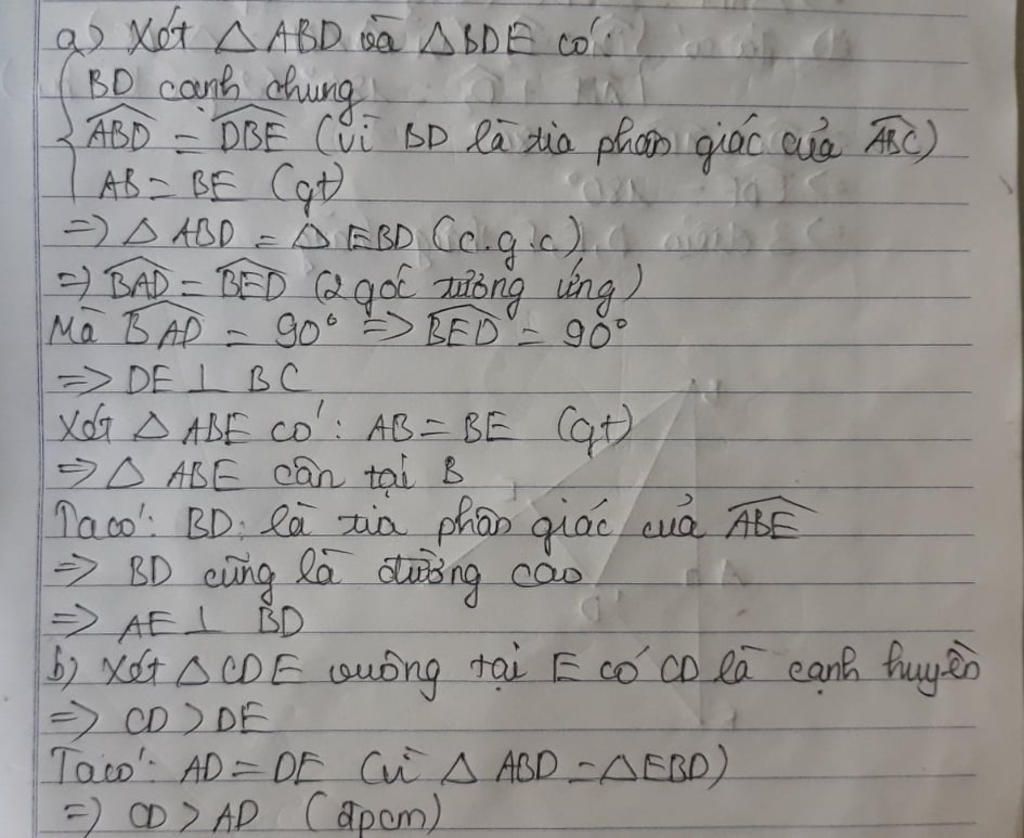 a) Xét △ ABD và △ BDE có:
BD cạnh chung
$\widehat{ABD}$ = $\widehat{DBE}$ (vì BD là tia phân giác của $\widehat{ABC}$)
AB = BE (gt)
=> △ ABD = △ EBD (c.g.c)
=> $\widehat{BAD}$ = $\widehat{BED}$ (2 góc tương ứng)
Mà $\widehat{BAD}$ = 90° => $\widehat{BED}$ = 90°
=> DE ⊥ BC
Xét △ ABE có: AB = BE (gt)
=> △ ABE cân tại B
Ta có: BD là tia phân giác của $\widehat{ABE}$
=> BD cũng là đường cao
=> AE ⊥ BD
b) Xét △ CDE vuông tại E có CD là cạnh huyền
=> CD > DE
Ta có: AD = DE (vì △ ABD = △ EBD)
=> CD > AD (đpcm)